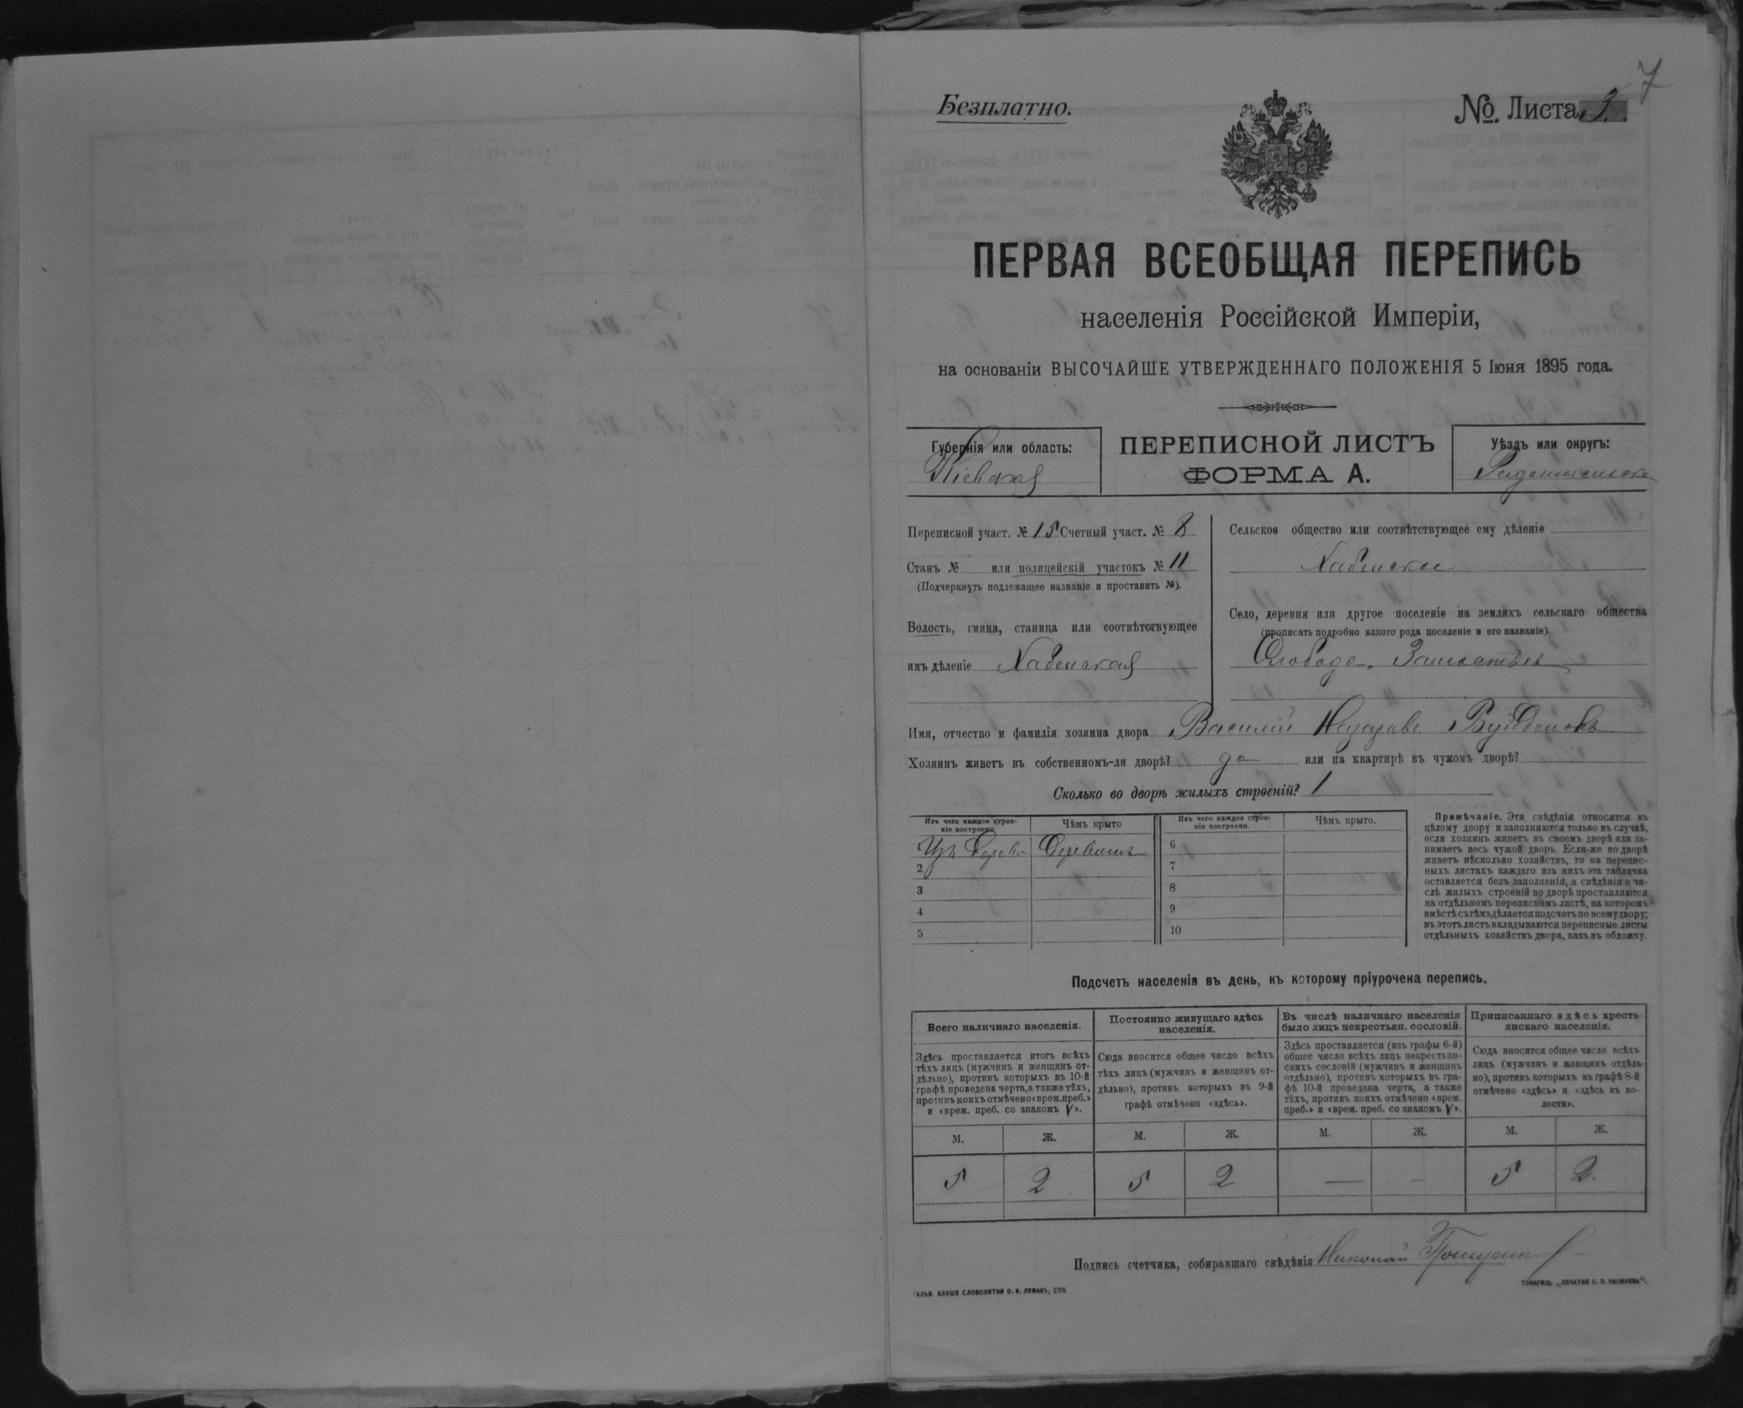 7
Безплатно.
№. Листа 3.
ПЕРВАЯ ВСЕОБЩАЯ ПЕРЕПИСЬ
населенія Россійской Имперіи,
на основаніи ВЫСОЧАЙШЕ УТВЕРЖДЕННАГО ПОЛОЖЕНІЯ 5 Іюня 1895 года.
Губернія или область:
Кіевская
ПЕРЕПИСНОЙ ЛИСТЪ
ФОРМА А.
Уѣздъ или округъ:
Переписной участ. № 15 Счетный участ. № 8
Станъ № или полицейскій участокъ № 11
(Подчеркнуть подлежащее названіе и проставить №).
Волость, гмина, станица или соотвѣтствующее
имъ дѣленіе Хабенская
Сельское общество или соотвѣтствующее ему дѣленіе
Хабенское
Село, деревня или другое поселеніе на земляхъ сельскаго общества
(прописать подробно какого рода поселеніе и его названіе)
Слобода
Имя, отчество и фамилія хозяина двора Василій
Хозяинъ живетъ въ собственномъ-ли дворѣ? да или на квартирѣ въ чужомъ дворѣ?
Сколько во дворѣ жилыхъ строеній? 1
Изъ чего каждое строе-
ніе построено.
Чѣмъ крыто
Изъ чего каждое строе-
ніе построено.
Чѣмъ крыто.
2
3
4
5
6
7
8
9
10
Примѣчаніе. Эти свѣдѣнія относятся къ
цѣлому двору и заполняются только въ случаѣ,
если хозяинъ живетъ въ своемъ дворѣ или за-
нимаетъ весь чужой дворъ. Если же во дворѣ
живетъ нѣсколько хозяйствъ, то на перепис-
ныхъ листахъ каждаго изъ нихъ эта табличка
оставляется безъ заполненія, а свѣдѣнія о чи-
слѣ жилыхъ строеній во дворѣ проставляются
на отдѣльномъ переписномъ листѣ, на которомъ
вмѣстѣ съ тѣмъ дѣлается подсчетъ по всему двору;
въ этотъ листъ вкладываются переписные листы
отдѣльныхъ хозяйствъ двора, какъ въ обложку.
Подсчетъ населенія въ день, къ которому пріурочена перепись.
Всего наличнаго населенія.
Здѣсь проставляется итогъ всѣхъ
тѣхъ лицъ (мужчинъ и женщинъ от-
дѣльно), противъ которыхъ въ 10-й
графѣ проведена черта, а также тѣхъ,
противъ коихъ отмѣчено «врем. преб.»
и «врем. преб. со знакомъ V».
Постоянно живущаго здѣсь
населенія.
Сюда вносится общее число всѣхъ
тѣхъ лицъ (мужчинъ и женщинъ от-
дѣльно), противъ которыхъ въ 9-й
графѣ отмѣчено «здѣсь».
Въ числѣ наличнаго населенія
было лицъ некрестьян. сословій.
Здѣсь проставляется (изъ графы 6-й)
общее число всѣхъ лицъ некрестьян-
скихъ сословій (мужчинъ и женщинъ
отдѣльно), противъ которыхъ въ гра-
фѣ 10-й проведена черта, а также
тѣхъ, противъ коихъ отмѣчено «врем.
преб.» и «врем. преб. со знакомъ V».
Приписаннаго здѣсь кресть-
янскаго населенія.
Сюда вносится общее число всѣхъ
лицъ (мужчинъ и женщинъ отдѣль-
но), противъ которыхъ въ графѣ 8-й
отмѣчено «здѣсь» и «здѣсь къ во-
лости».
М. Ж. М. Ж. М. Ж. М. Ж.
5 2 5 2 — — 5 2.
Подпись счетчика, собиравшаго свѣдѣнія Николай
ТОВАРИЩ. „ПЕЧАТНЯ С. П. ЯКОВЛЕВА“.